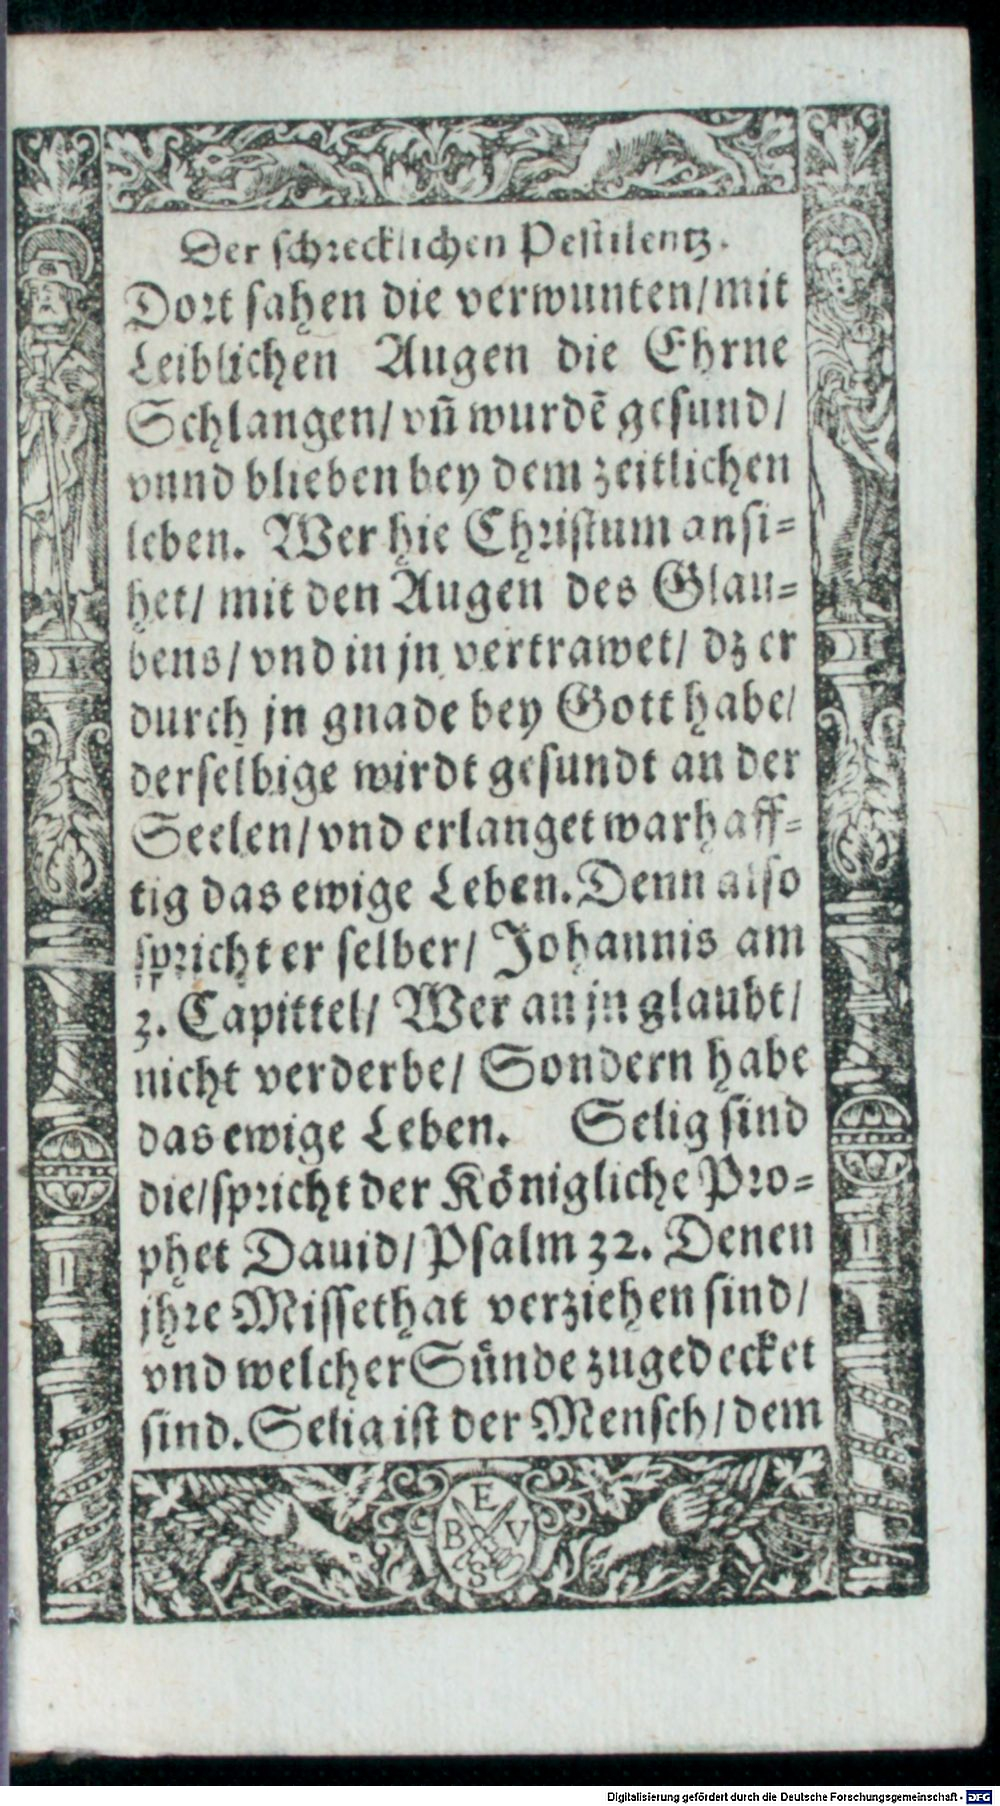 Der schrecklichen Pestilentz.
Dort sahen die verwunten/mit
Leiblichen Augen die Ehrne
Schlangen/ vñ wurdẽ gesund/
vnnd blieben bey dem zeitlichen
leben. Wer hie Christum ansi=
het/ mit den Augen des Glau=
bens/ vnd in jn vertrawet/ dz er
durch jn gnade bey Gott habe/
derselbige wirdt gesundt an der
Seelen/ vnd erlanget warhaff=
tig das ewige Leben. Denn also
spricht er selber/ Johannis am
3. Capittel/ Wer an jn glaubt/
nicht verderbe/ Sondern habe
das ewige Leben. Selig sind
die/spricht der Königliche Pro=
phet Dauid/ Psalm 32. Denen
jhre Missethat verziehen sind/
vnd welcher Sünde zugedecket
sind. Selig ist der Mensch/ dem
E
B V
S
Digitalisierung gefördert durch die Deutsche Forschungsgemeinschaft - DFG